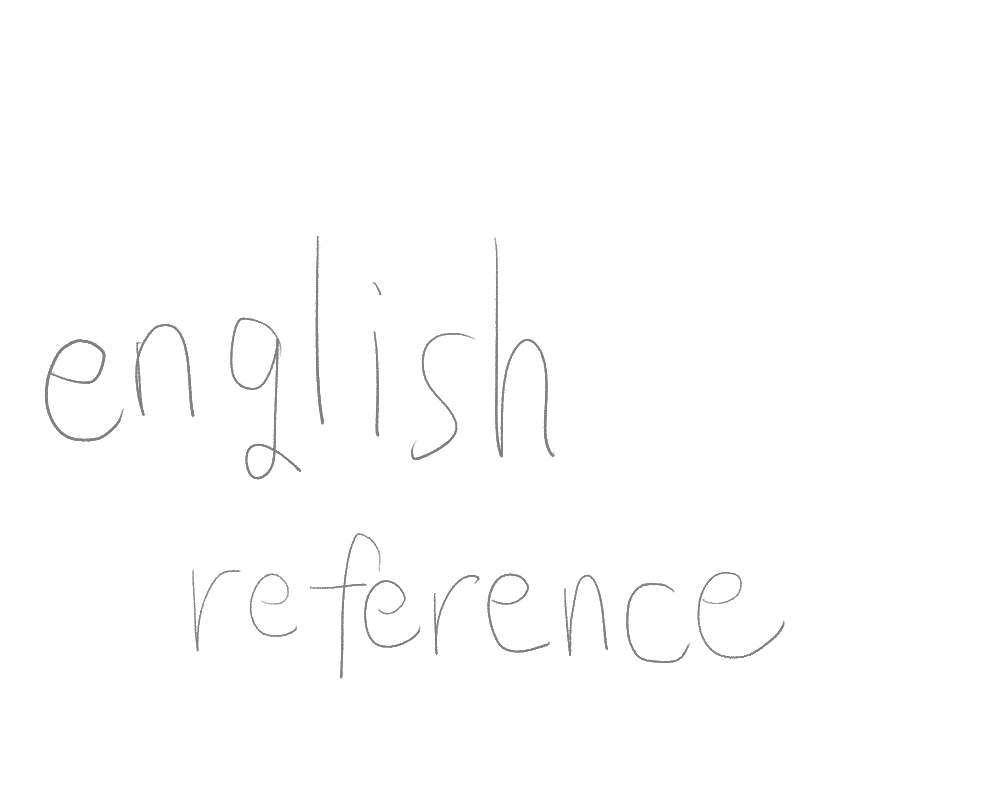 english
reference